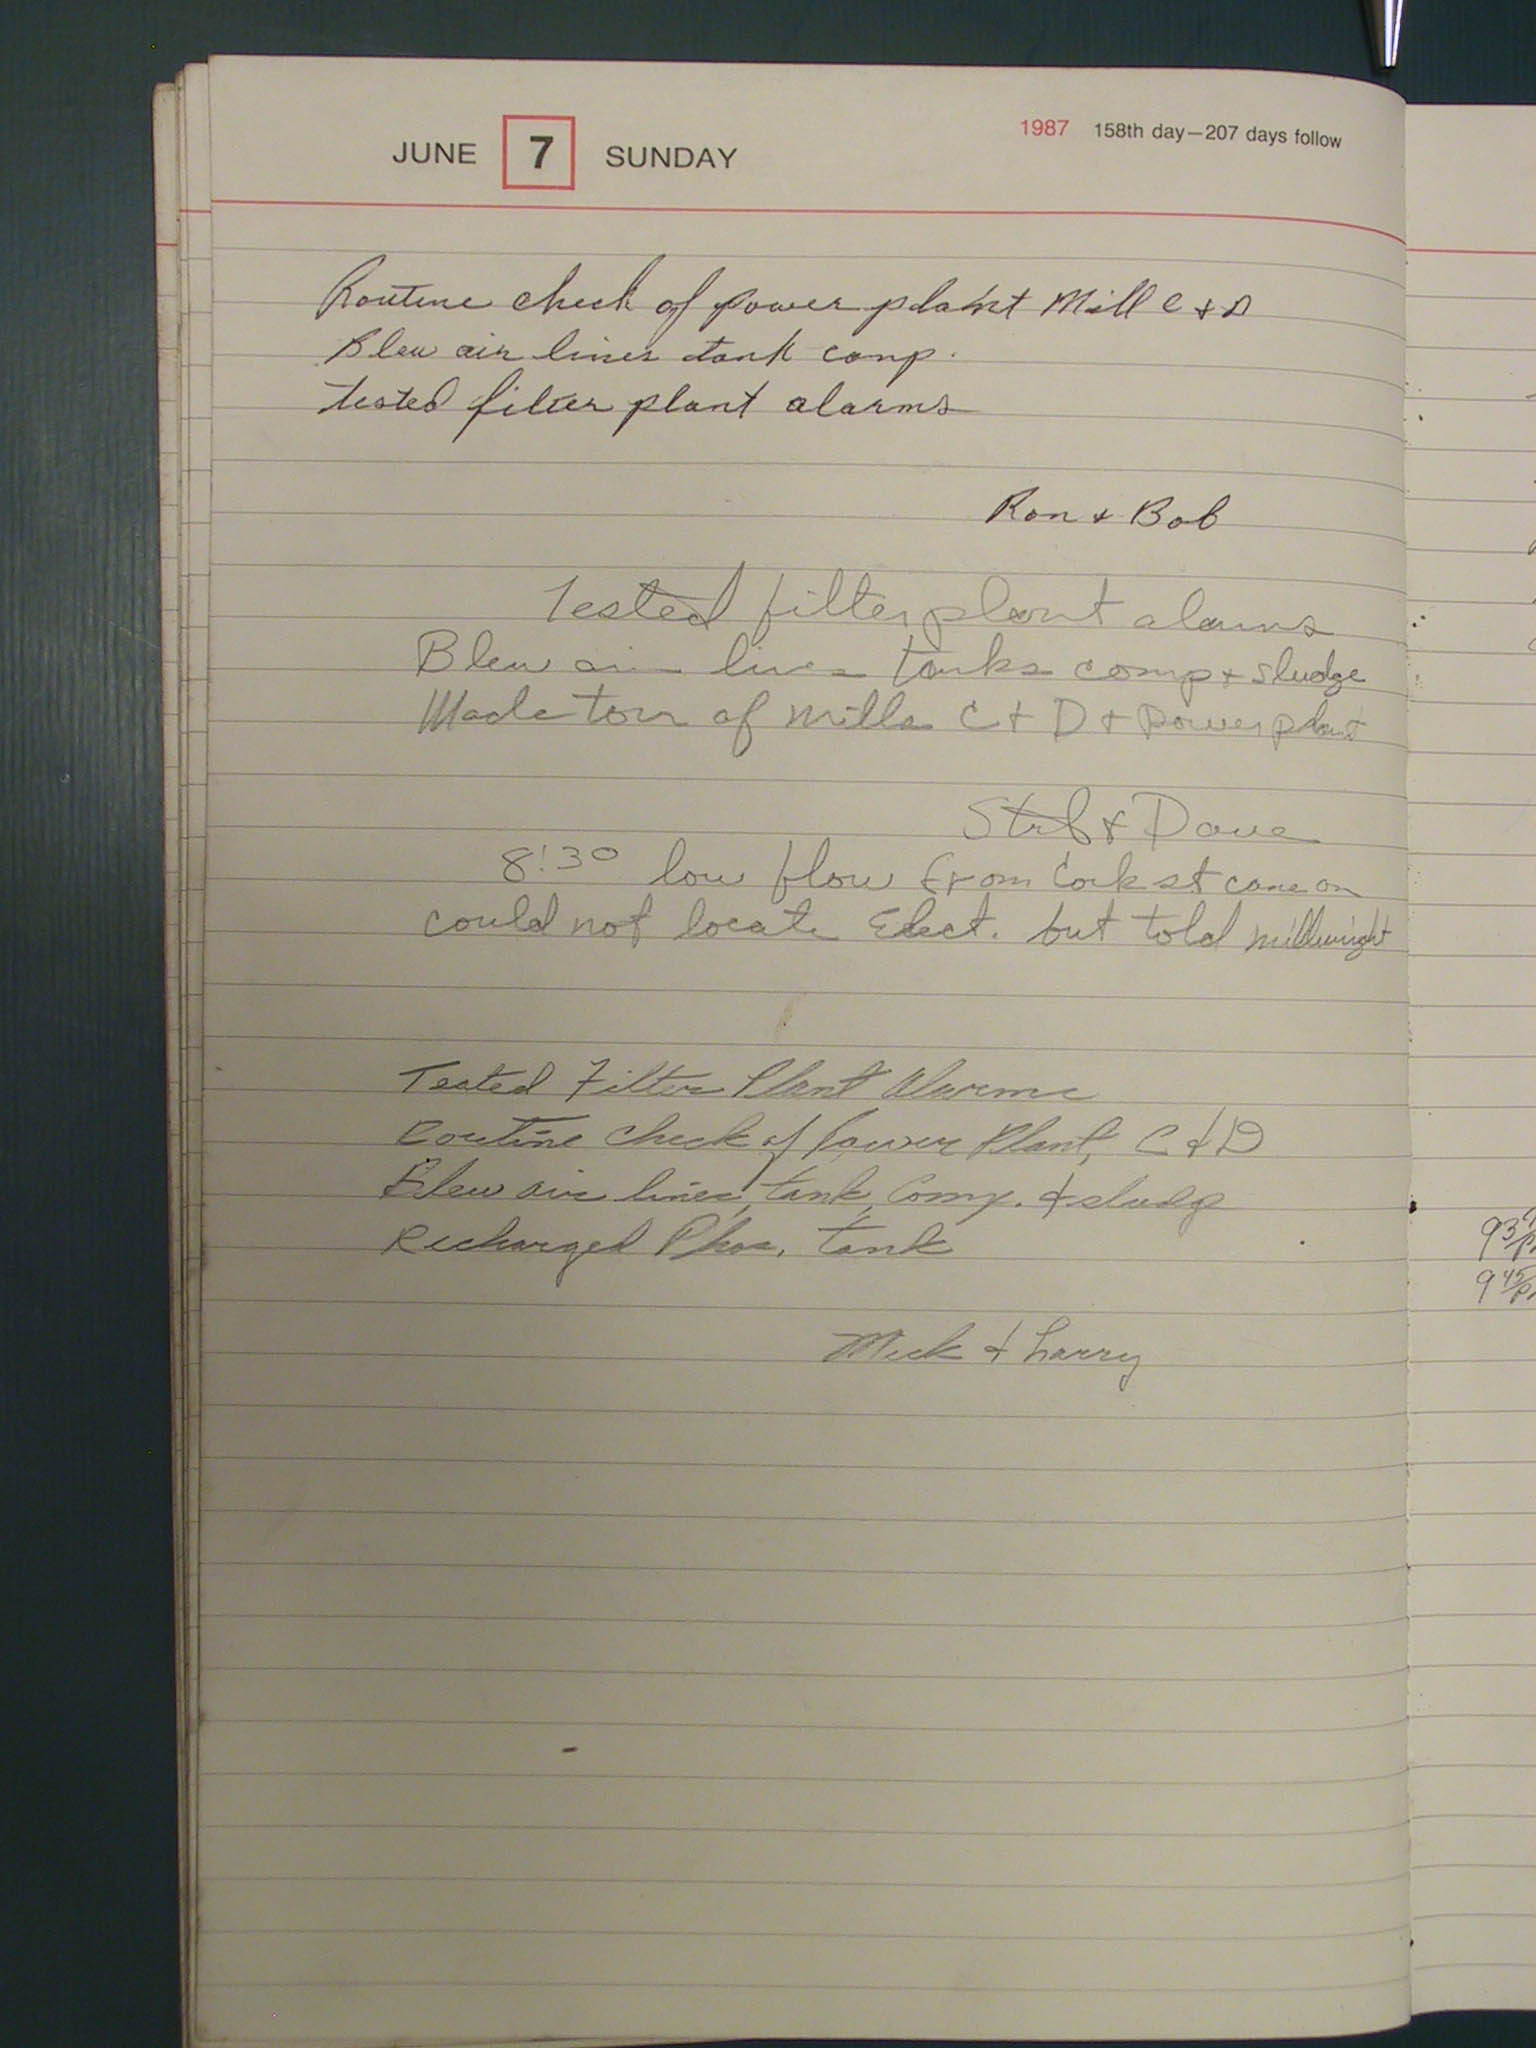 JUNE 7 SUNDAY 1987 158th day—207 days follow
Routine check of power plant Mill C & D
Blew air lines tank comp.
tested filter plant alarms
Ron & Bob
Tested filter plant alarms
Blew air lines tanks comp & sludge
Made tour of mills C & D & power plant
& Dave
8:30 low flow from Cork st came on
could not locate Elect. but told millwright
Tested Filter Plant Alarms
Routine check of Power Plant, C & D
Blew air lines, tank, Comp. & sludge
Recharged Phos. tank
Mick & Larry
93
945